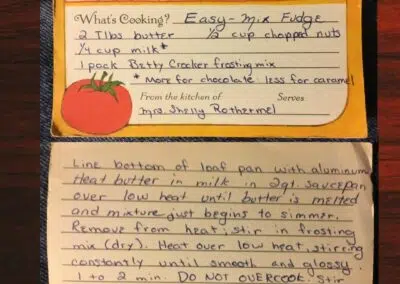 What's Cooking? Easy-Mix Fudge
2 Tlbs butter 1/2 cup chopped nuts
1/4 cup milk*
1 pack Betty Crocker frosting mix
* More for chocolate: less for caramel
From the kitchen of Serves
Mrs. Shelly Rothermel
Line bottom of loaf pan with aluminum
Heat butter in milk in 2qt. saucepan
over low heat until butter is melted
and mixture just begins to simmer.
Remove from heat; stir in frosting
mix (dry). Heat over low heat, stirring
constantly until smooth and glossy.
1 to 2 min. DO NOT OVERCOOK. Stir